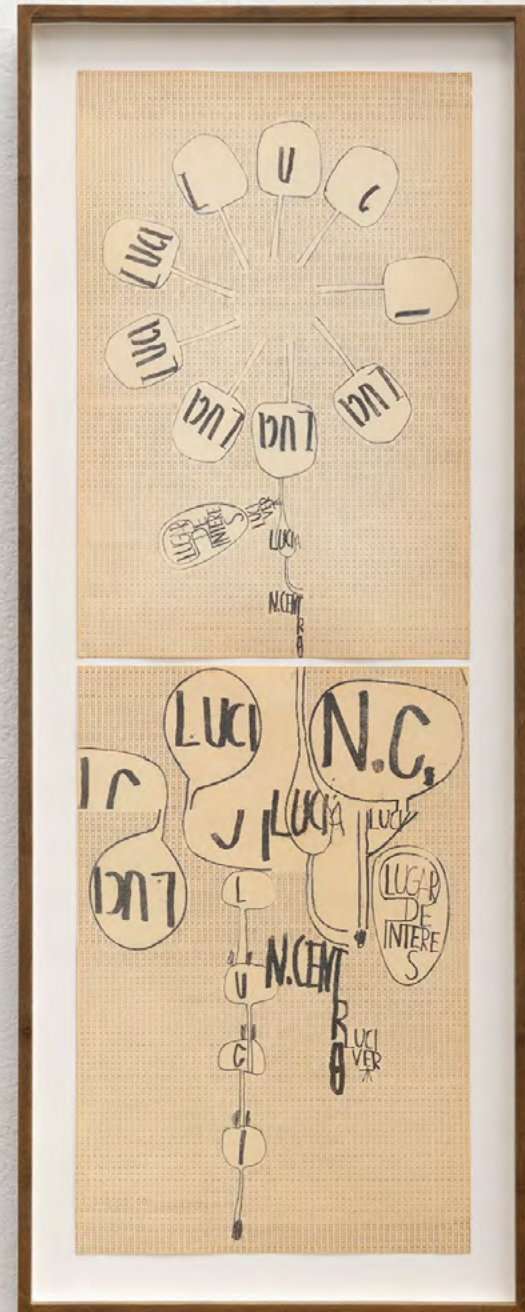 L
U
C
I
LUCI
LUCI
LUCI
LUCI
LUCI
LUGAR
DE
INTERE
S
LUCIA
N.CENT
R
O
LUCI
N.C.
LUCIA
LUCI
LUCI
L
U
C
I
LUGAR
DE
INTERE
S
N.CENT
R
O
LUCI
VER